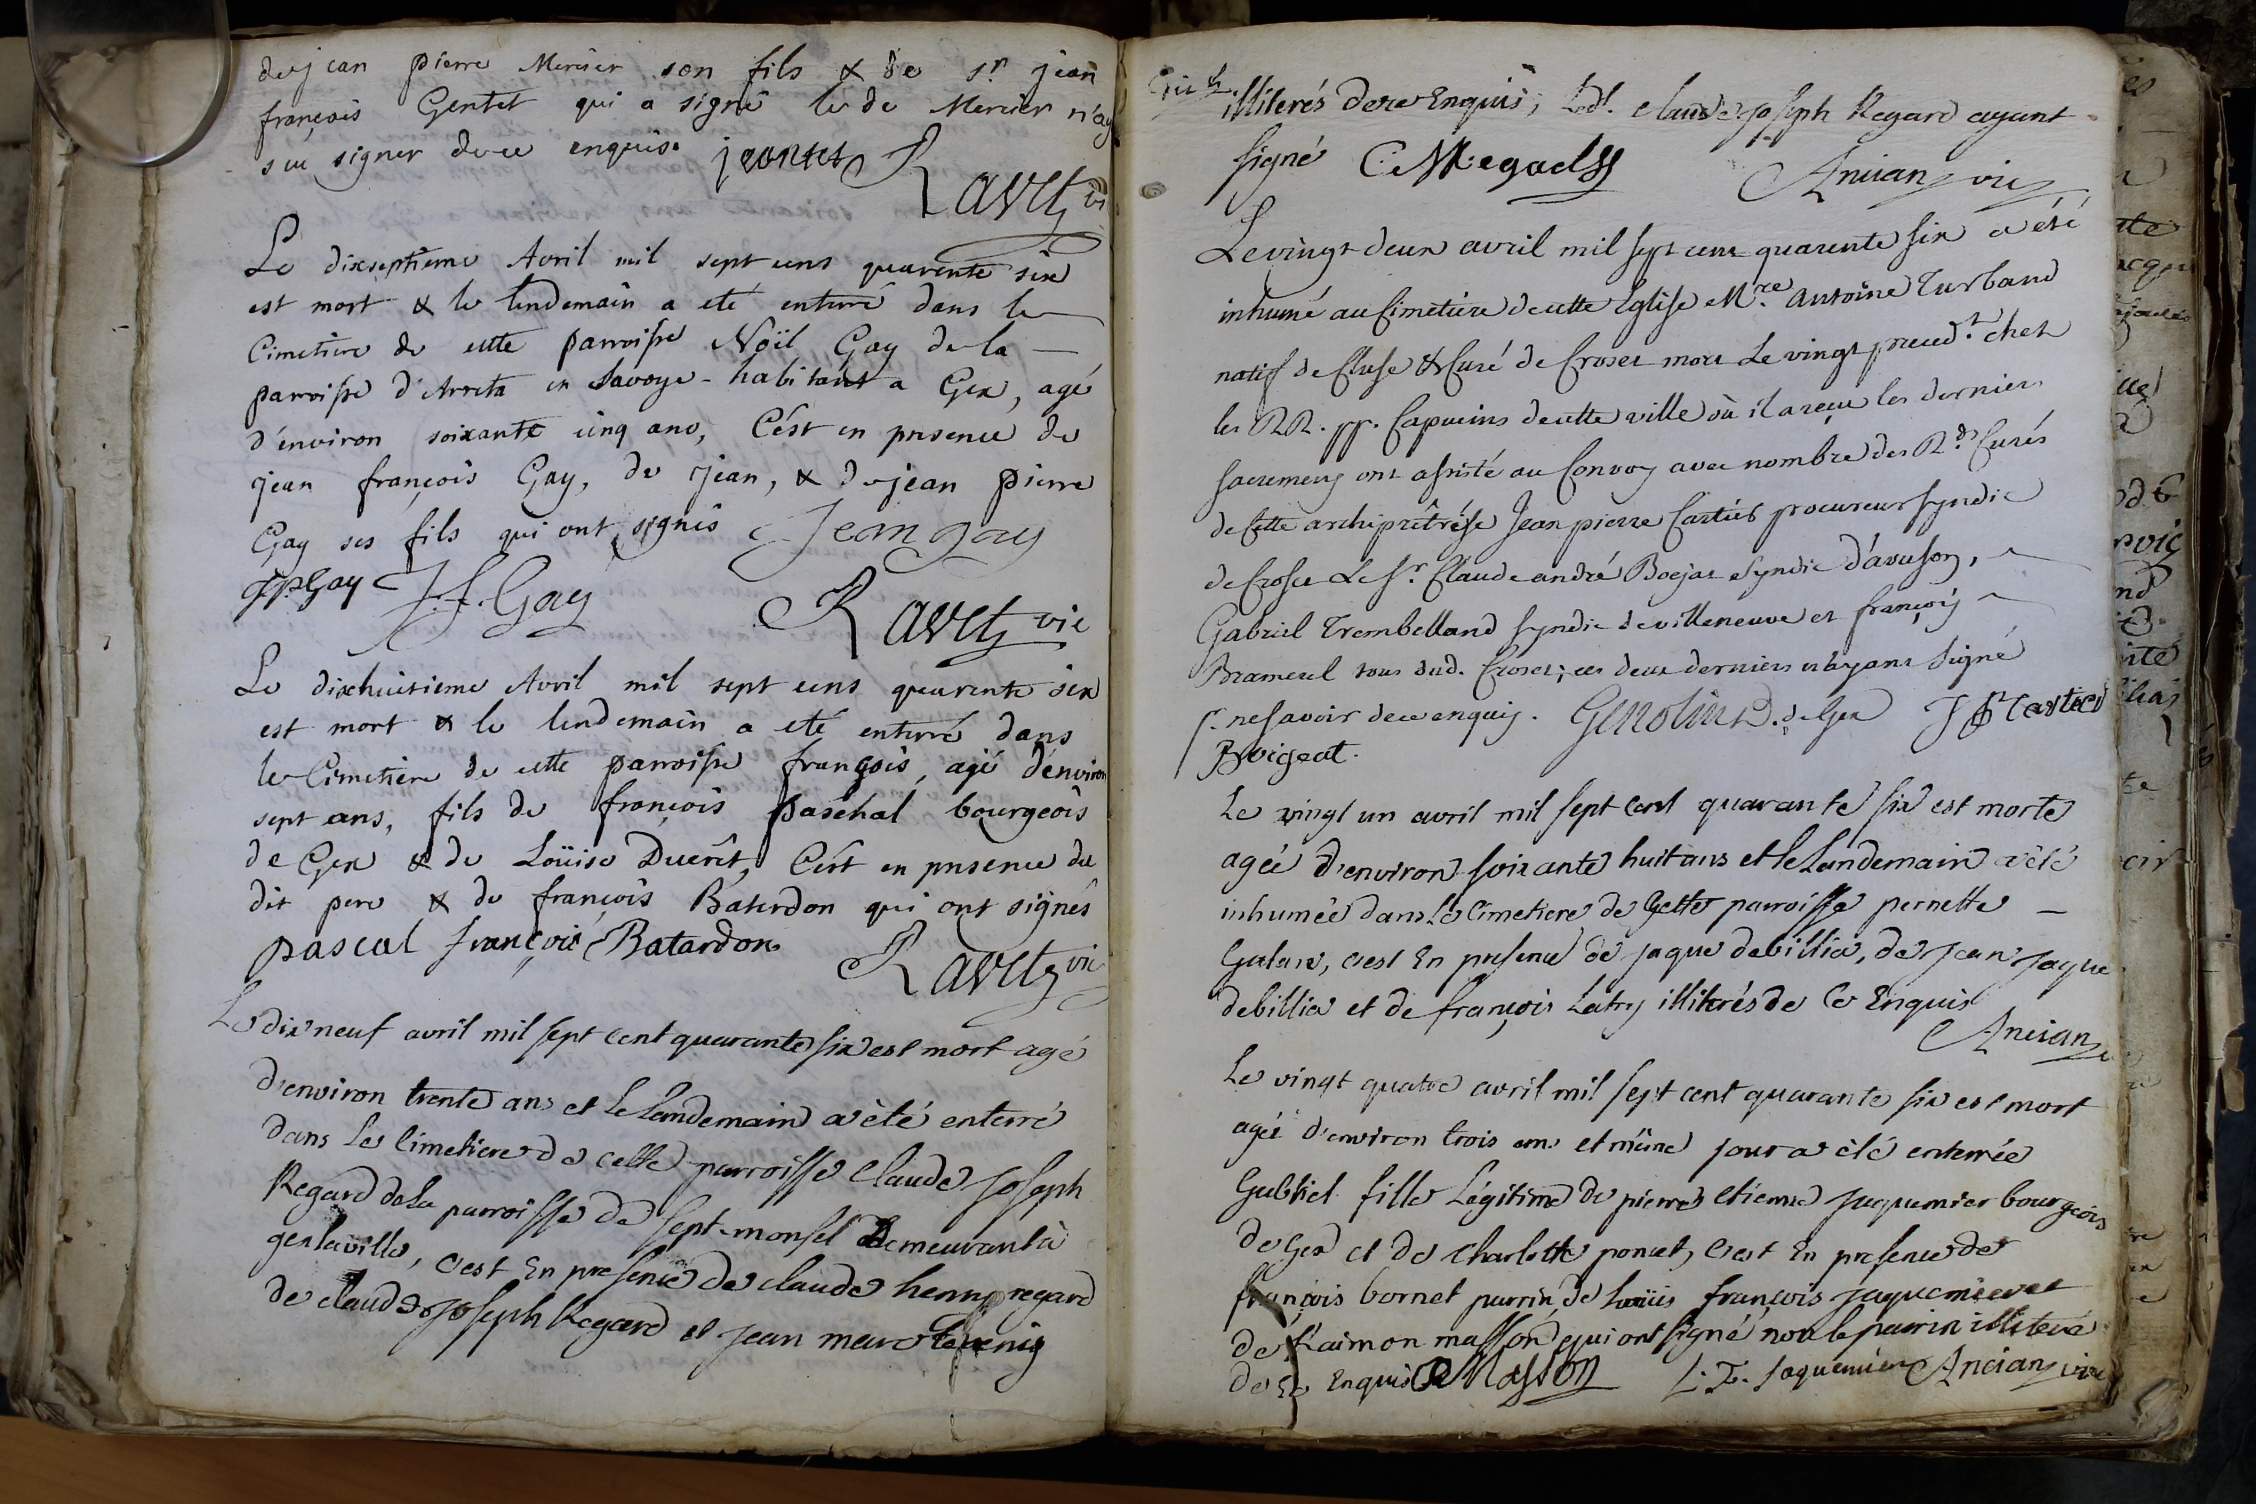 de jean pierre Mercier son fils & de Sr. jean
françois Gentet qui a signé le de Mercier n'ay
sçu signer de ce enquis. jeantet Ravet vi
Le dixseptieme Avril mil sept cens quarente six
est mort & le lendemain a eté enterré dans le
Cimetiere de cette parroisse Noël Gay de la
parroisse d'Arreta en Savoye - habitant a Gex, agé
d'environ soixante cinq ans, C'ést en presence de
jean françois Gay, de jean, & de jean pierre
Gay ses fils qui ont signés Jean gay
J.p. Gay J.f. Gay Ravet vic
Le dixhuitieme Avril mil sept cens quarente six
est mort & le lendemain a eté enterré dans
le Cimetiere de cette parroisse françois, agé d'environ
sept ans, fils de françois paschal bourgeois
de Gex & de Loüise Duerêt, C'ést en presence du
dit pere & de françois Baterdon qui ont signés
pascal françois Batardon Ravet vic
Le dix neuf avril mil sept cent quarante six est mort agé
d'environ trente ans et le Lendemain a èté enterré
dans Le Cimetiere de cette parroisse Claude Joseph
Regard de La parroisse de Sept-monsel Demeurant à
gex la ville, c'est En presence de claude henry regard
de claude joseph Regard et jean marc
illiterés de ce Enquis, Ledt. Claude joseph Regard ayant
signé C: M: egad Ancian vic
Le vingt deux avril mil sept cent quarente six a été
inhumé au Cimetiere de cette Eglise Mre. Antoine Turband
natif de Cluse & Curé de Crozet mort Le vingt preced.t chez
les RR. pp. Capucins de cette ville où il a reçu les derniers
sacremens ont assisté au Convoy avec nombre des Rds. Curés
de Cette archiprêtrése Jean pierre Castier procureur syndic
de Crosex Le Sr. Claude andré Bojat syndic d'avuson,
Gabriel Trembelland syndic de villeneuve et françois
Bramerel tous dud. Crozet; ces deux derniers n'ayant signé
p. ne savoir de ce enquis. Genolin D. de Gex J P Castier
Boigeat.
Le vingt un avril mil sept cent quarante six est morte
agée d'environ soixante huit ans et le Lendemain a èté
inhumée dans Le Cimetiere de Cette parroisse pernette
Galan, c'est En presence de jaque debillia, de jean jaque
debillia et de françois Latry illiterés de Ce Enquis
Ancian
Le vingt quatre avril mil sept cent quarante six est mort
agée d'environ trois ans et même jour a èté enterrée
Gabriel fille Légitime de pierre etienne jaquemier bourgeois
de Gex et de Charlotte poncet, c'est En presence de
françois bornet parrin, de Louis françois jaquemier et
de Raimon masson qui ont signé non le parrin illiteré
de ce Enquis R Masson L. F. Jaquemier Ancian vic